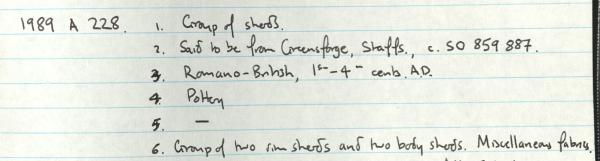 1989 A 228. 1. Group of sherds.
2. Said to be from Greensforge, Staffs, c. SO 859 887.
3. Romano-British, 1st-4th cents. A.D.
4. Pottery
5. —
6. Group of two rim sherds and two body sherds. Miscellaneous fabrics,